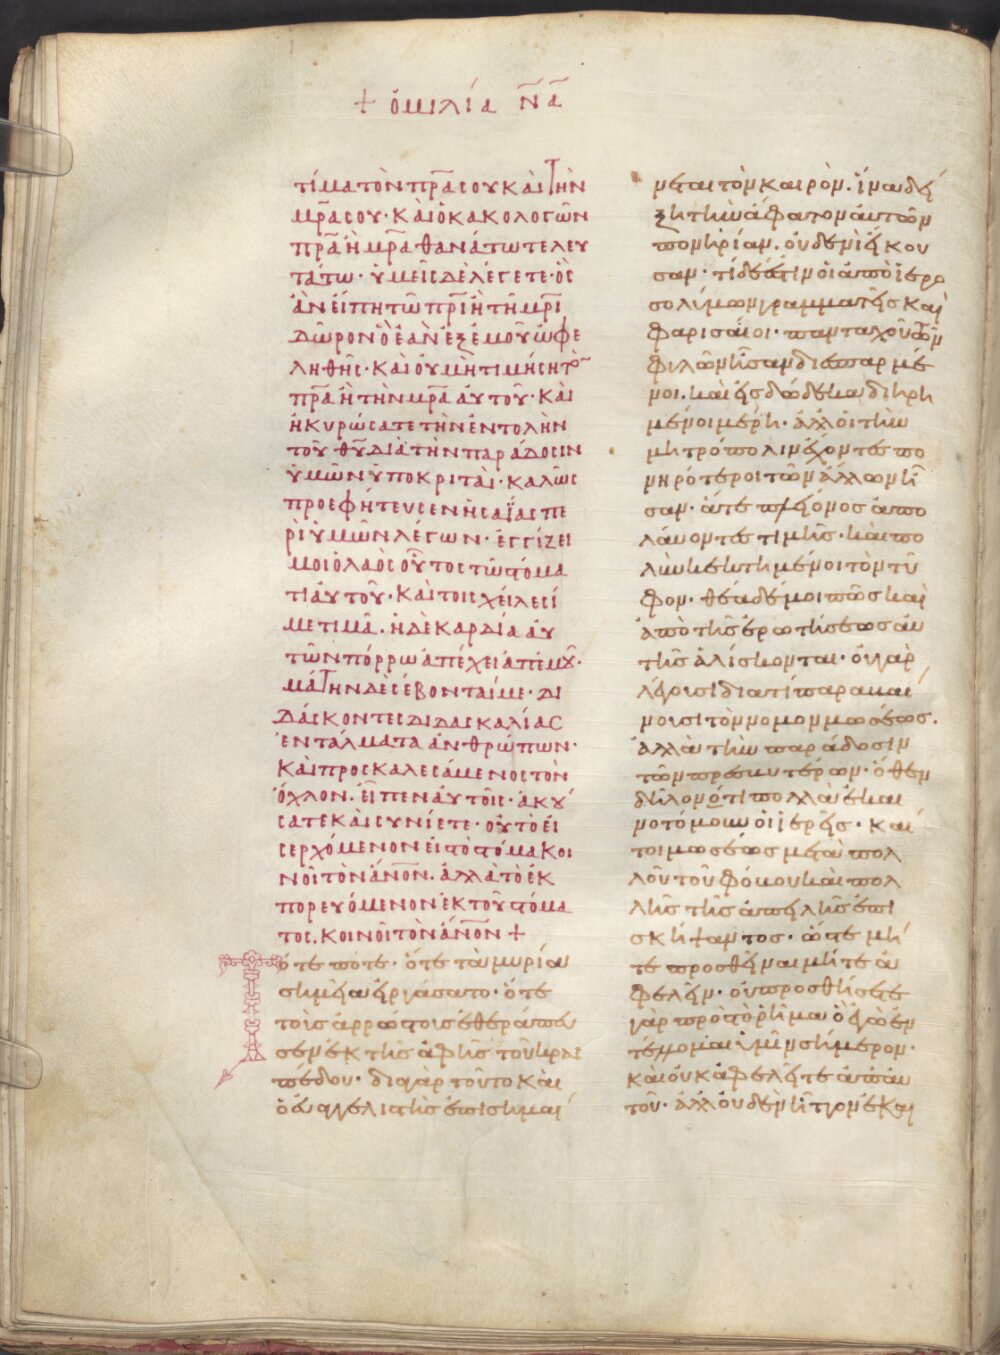 + ὁμιλία ν̅α̅
τίμα τὸν πρ̅α σου καὶ τὴν
μρ̅α σου· καὶ ὁ κακολογῶν
πρ̅α ἢ μρ̅α θανάτω τελευ
τάτω· ὑμεῖς δὲ λέγετε· ὃς
ἂν είπη τῶ πρ̅ὶ ἢ τῆ μρ̅ὶ
δῶρον ὃ ἐὰν ἐξ ἐμοῦ ὠφε
ληθῆς· καὶ οὐ μὴ τιμήση τὸν
πρ̅α ἢ τὴν μρ̅α αὐτοῦ· καὶ
ἠκυρώσατε τὴν ἐντολὴν
τοῦ θ̅υ̅ διὰ τὴν παράδοσιν
ὑμῶν ὑποκριταὶ· καλῶς
προεφήτευσεν ἡσαΐας πε
ρὶ ὑμῶν λέγων· ἐγγίζει
μοι ὁ λαὸς οὗτος τῶ στόμα
τι αὐτοῦ· καὶ τοῖς χείλεσί
με τιμᾶ. ἡ δὲ καρδία αὐ
τῶν πόρρω ἀπέχει ἀπ ἐμοῦ·
μάτην δὲ σέβονταί με· δι
δάσκοντες διδασκαλίας
ἐντάλματα ἀνθρώπων·
καὶ προσκαλεσάμενος τὸν
ὄχλον. εἶπεν αὐτοῖς· ἀκού
σατε καὶ συνίετε· οὐ τὸ εἰ
σερχόμενον εἰς τὸ στόμα κοι
νοῖ τὸν ἄν̅ο̅ν. ἀλλὰ τὸ ἐκ
πορευόμενον ἐκ τοῦ στόμα
τος. κοινοῖ τὸν ἄν̅ο̅ν +
Τότε πότε· ὅτε τὰ μυρία
σημεῖα εἰργάσατο· ὅτε
τοὺς ἀρρώστους ἐθεράπευ
σεν ἐκ τῆς ἁφῆς τοῦ κρασ
πέδου· διὰ γὰρ τοῦτο καὶ
ὁ εὐαγγελιστὴς ἐπισημαί
νεται τὸν καιρὸν. ἵνα δεί
ξη τὴν ἄφατον αὐτῶν
πονηρίαν. οὐδενὶ εἴκου
σαν· τί δέ ἐστιν οἱ ἀπὸ ἱερο
σολύμων γραμματεῖς καὶ
φαρισαῖοι· πανταχοῦ τῶν
φυλῶν ἦσαν διεσπαρμέ
νοι. καὶ εἰς δώδεκα διηρη
μένοι μέρη· ἀλλ οἱ τὴν
μητρόπολιν ἔχοντες πο
νηρότεροι τῶν ἄλλων ἦ
σαν· ἅτε πλείονος ἀπο
λαύοντες τιμῆς· καὶ πο
λὺν κεκτημένοι τὸν τῦ
φον· θέα δέ μοι πῶς καὶ
ἀπὸ τῆς ἐρωτήσεως αὐ
τῆς ἁλίσκονται· οὐ γὰρ
λέγουσι διατί παραβαί
νουσι τὸν νόμον μωσέως.
ἀλλὰ τὴν παράδοσιν
τῶν πρεσβυτέρων· ὅθεν
δῆλον ὅτι πολλὰ ἐκαι
νοτόμουν οἱ ἱερεῖς· καί
τοι μωσέως μετὰ πολ
λοῦ τοῦ φόβου καὶ πολ
λῆς τῆς ἀπειλῆς ἐπι
σκήψαντος· ὥστε μή
τε προσθεῖναι μήτε ἀ
φελεῖν. οὐ προσθήσετε
γὰρ πρὸς τὸ ῥῆμα ὃ ἐγὼ ἐν
τέλλομαι ὑμῖν σήμερον·
καὶ οὐκ ἀφελεῖτε ἀπ αὐ
τοῦ· ἀλλ οὐδὲν ἧττον ἐκαι